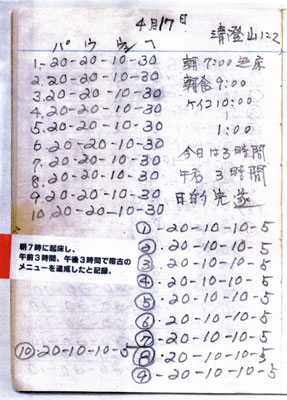 4月17日
清澄山にて
パ ウ ウェ ヘ
1.-20-20-10-30
2.20-20-10-30
3.20-20-10-30
4.20-20-10-30
5.-20-20-10-30
6.20-20-10-30
7.20-20-10-30
8.20-20-10-30
9.20-20-10-30
10.20-20-10-30
朝7:00起床
朝食9:00
ケイコ10:00
〜
1:00
今日は3時間
午后3時間
目的完遂
朝7時に起床し、
午前3時間、午後3時間で稽古の
メニューを達成したと記録。
①-20-10-10-5
②-20-10-10-5
③-20-10-10-5
④-20-10-10-5
⑤-20-10-10-5
⑥-20-10-10-5
⑦-20-10-10-5
⑧-20-10-10-5
⑨-20-10-10-5
⑩-20-10-10-5